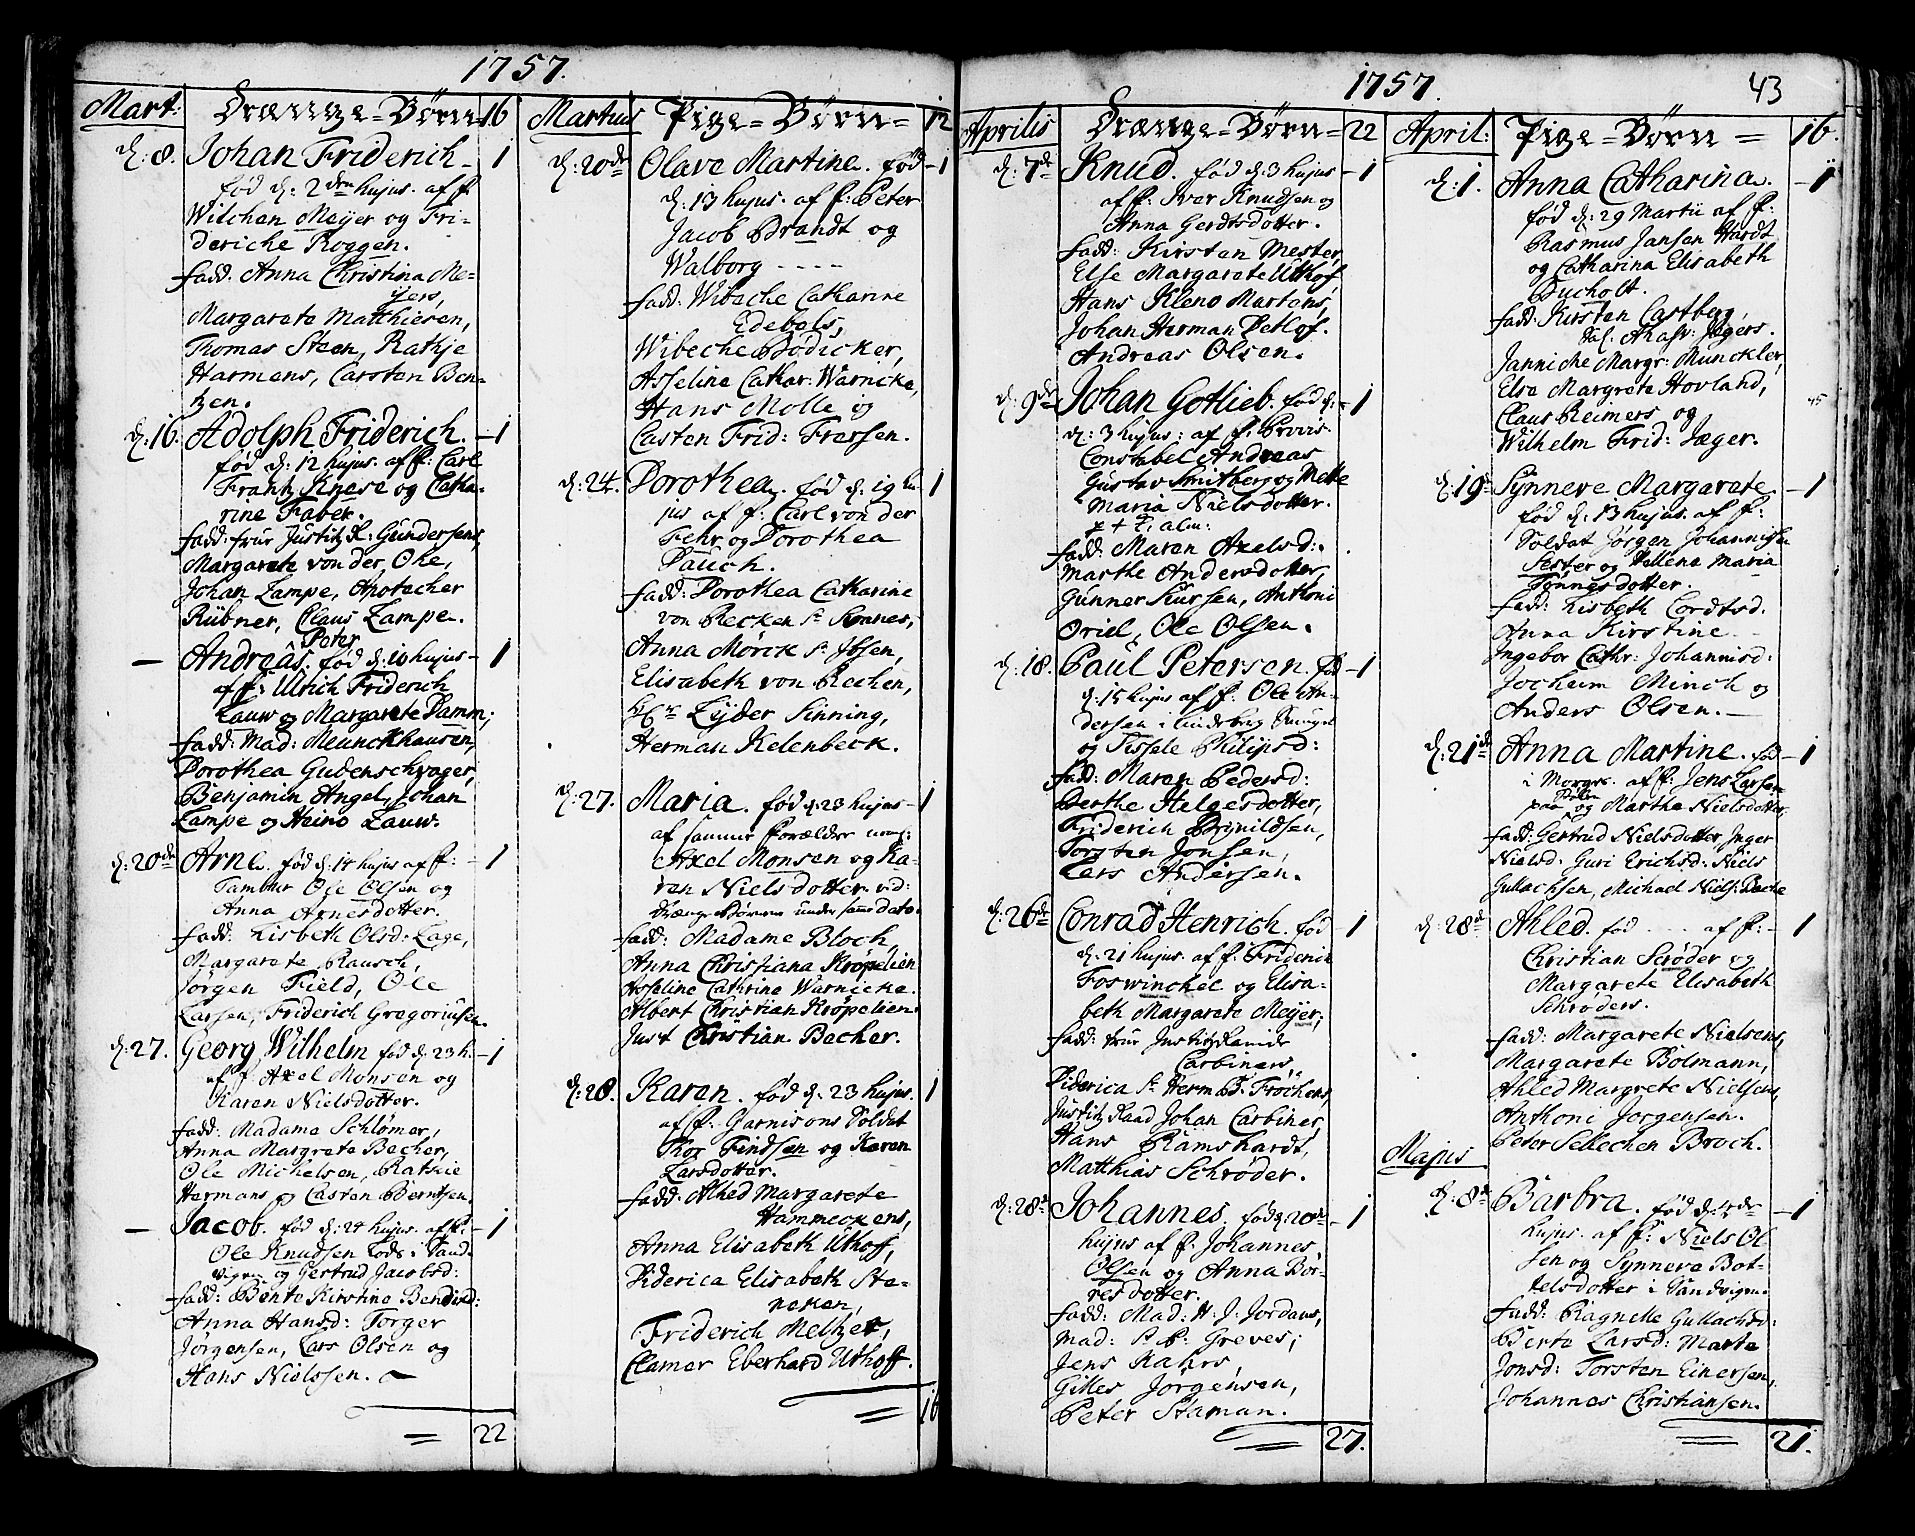 1757.
Mart: Drænge-Børn 16
d: 8. Johan Friderich - 1
fød d: 2den hujus. af f.
Wilchen Meÿer og Fri-
deriche Roggen.
fadd: Anna Christina Me-
ÿers,
Margarete Matthiesen,
Thomas Steen, Kathje
Harmens, Carsten Ben-
tzen.
d: 16. Adolph Friderich. - 1
fød d: 12 hujus. af f: Carl
Frantz Knese og Catha-
rine Faber.
fadd: frur Justitz R: Gundersens,
Margarete von der Ohe,
Johan Lampe, Apotecher
Rübner, Claus Lampe.
Peter
— Andreas. fød d: 10 hujus - 1
af f: Ulrich Friderich
Lauw og Margarete Damm;
fadd: Mad: Meunckhausen,
Dorothea Gudenschwager,
Benjamin Angel, Johan
Lampe og Heino Lauw.
d: 20de Arne. fød d: 14 hujus af f: - 1
Tambur Ole Olsen og
Anna Arnesdotter.
fadd: Lisbeth Olsd: Lage,
Margarete Rausch,
Jørgen Field, Ole
Larsen, Friderich Gregoriusen.
d: 27. Georg Wilhelm fød d: 23 h. - 1
af f: Axel Monsen og
Karen Nielsdotter.
fadd: Madame Schlømer,
Anna Margrete Becher,
Ole Michelsen, Kathie
Hermans og Casten Berntsen.
— Jacob. fød d: 24 hujus. af f: - 1
Ole Knudsen Lods i Sand-
vigen og Gertrud Jacobsd:
fadd: Bente Kirstine Bendixd:
Anna Hansd: Torger
Jørgensen, Lars Olsen og
Hans Nielssen.
22
Martius Pige-Børn- 12
d: 20de Olave Martine. fød - 1
d: 13 hujus. af f: Peter
Jacob Brandt og
Walborg ----
fadd: Wibeche Catharine
Edebols,
Wibeche Bødicker,
Asseline Cathar: Warnicke,
Hans Molle og
Casten Frid: Fresen.
d: 24. Dorothea. fød d: 19 hu- 1
jus af f: Carl von der
Fehr og Dorothea
Pauch.
fadd: Dorothea Catharine
von Recken Sr Sonnes,
Anna Mørck Sr Ibsen,
Elisabeth von Rechen,
Hr Zÿder Sinning,
Herman Kelenbeck.
d: 27. Maria. fød d: 23 hujus - 1
af samme Forældre
Axel Monsen og Ka-
ren Nielsdotter vid:
Drænge Børnene under samme dato.
fadd: Madame Bloch,
Anna Christiana Krøpelien
Asseline Cathrine Warnicke.
Albert Christian Krøpelien
Just Christian Becher.
d: 28. Karen. fød d: 23 hujus. 1
af f: Garnisons Soldat
Roe Findsen og Karen
Larsdotter.
fadd: Ahled Margarete
Hammeckens,
Anna Elisabeth Uthoff,
Diderica Elisabeth Sta-
neken,
Friderich Meltzer,
Clamer Eberhard Uthoff.
16
1757. 43
Aprilis Drænge-Børn- 22
d: 7de Knud. fød d: 3 hujus - 1
af f: Iver Knudsen og
Anna Gerdtsdotter.
fadd: Kirsten Mester,
Else Margarete Uthof
Hans Kleno Martens,
Johan Herman Detlof.
Andreas Olsen.
d: 9de Johan Gotlieb. fød d: - 1
d: 3 hujus: af f:
Constabel Andreas
Gustav Smitberg og Mette
Maria Nielsdotter.
fadd: Maren Axelsd:
Marthe Andersdotter,
Gunner Kursen, Anthoni
Oriel, Ole Olsen.
d: 18. Paul Petersen. fød - 1
d: 15 hujus af f: Ole An-
dersen i
og Tissele Philipsd:
fadd: Maren Pedersd:
Berthe Helgesdotter,
Friderich Brynildsen,
Torsten Jonsen,
Lars Andersen.
d: 26de Conrad Henrich. fød - 1
d: 21 hujus. af f: Friderich
Foswinchel og Elisa-
beth Margarete Meijer;
fadd: frur Justitz Raadr
Carbiners,
Diderica Sr Herm: D: Frochens,
Justitz Raad Johan Carbiner,
Hans Ramshardt,
Matthias Schrøder.
d: 28de Johannes. fød d: 20de - 1
hujus af f: Johannes
Olsen og Anna Bor-
resdotter.
fadd: Mad: H: J: Jordans,
Mad: P: P: Greves;
Jens Kahrs,
Gilles Jørgensen,
Peter Staman.
27.
April: Pige-Børn- 16.
d: 1. Anna Catharina. - 1
fød d: 29 Martii af f:
Rasmus Jansen Hardt
og Catharina Elisabeth
Bucholt.
fadd: Kirsten Castberg,
Sal: Ahasv: Jægers.
Janniche Margr: Munckler,
Else Margrete Hovland,
Claus Reimers og
Wilhelm Frid: Jæger.
45
d: 19de Synneve Margarete. - 1
fød d: 13 hujus. af f:
Soldat Jørgen Johannissen
Sester og Hellena Maria
Tønnesdotter.
fadd: Lisbeth Cordtsd.
Anna Kirstine
Ingebor Cathr: Johannisd:
Jocheim Minch og
Anders Olsen. —
d: 21de Anna Martine. fød - 1
i Morges. af f: Jens Larsen
paa og Marthe Nielsdotter,
fadd: Gertrud Nielsdotter, Inger
Nielsd: Guri Erichsd: Niels
Gullachsen, Michael Niels: Bache
d: 28de Ahled. fød .... af f: - 1
Christian Scrøder og
Margarete Elisabeth
Schrøders.
fadd: Margarete Nielsens,
Margarete Bolmann,
Ahled Margrete Nielsens,
Anthoni Jørgensen.
Peter Sellechen Broch.
Majus
d: 8de Barbra. fød d: 5de - 1
hujus. af f: Niels Ol-
sen og Synneva Bot-
telsdotter i Sandvigen.
fadd: Ragnelle Gullachsd:
Berte Larsd: Marte
Jonsd: Torsten Einersen,
Johannes Christiansen.
21.